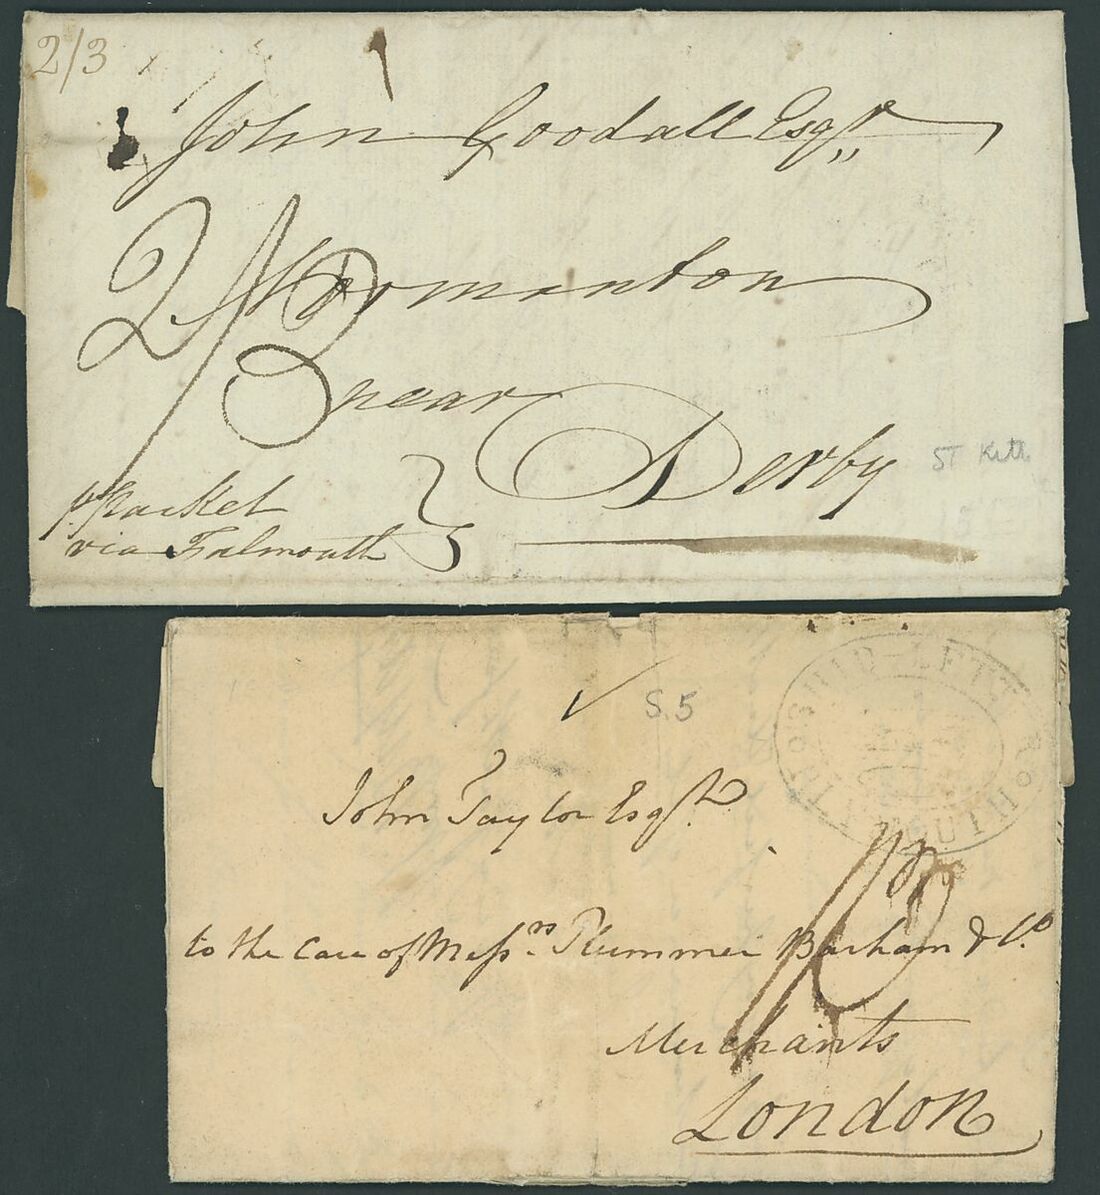 2/3
John Goodall Esqr
2/3
Normanton
near
Derby
ST Kitt
p. Packet
via Falmouth
SHIP-LETTER
S.5
John Taylor Esqr
to the Care of Messrs Plummer Barham & Co
Merchants
London